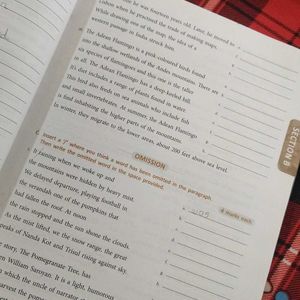 he was fourteen years old. Later, he moved to
Lisbon when he practised the trade of making maps.
While drawing one of the maps, the idea of a
western passage to India struck him.
The Adean Flamingo is a pink coloured birds found
into the shallow wetlands of the Andes mountains. There are
six species of flamingoes and this one is the taller
in all. The Adean Flamingo has a deep-keeled bill.
It's diet includes a range of plants found in water
This bird also feeds on sea animals who include fish
and small invertebrates. At summer, the Adean Flamingo
inhabiting the higher parts of the mountains.
In winter, they migrate to the lower areas, about 200 feet above sea level.
SECTION B
OMISSION
Insert a '/' where you think a word has been omitted in the paragraph.
Then write the omitted word in the space provided.
4 marks each
It raining when we woke up and
was
the mountains were hidden by heavy mist.
We delayed departure, playing football in
the verandah one of the pumpkins that
had fallen the roof. At noon
the rain stopped and the sun shone the clouds.
As the mist lifted, we the snow range, the great
peaks of Nanda Kot and Trisul rising against sky.
story, The Pomegranate Tree, has
William Saroyan. It is a light, humorous
which the uncle of narrator
harvest the